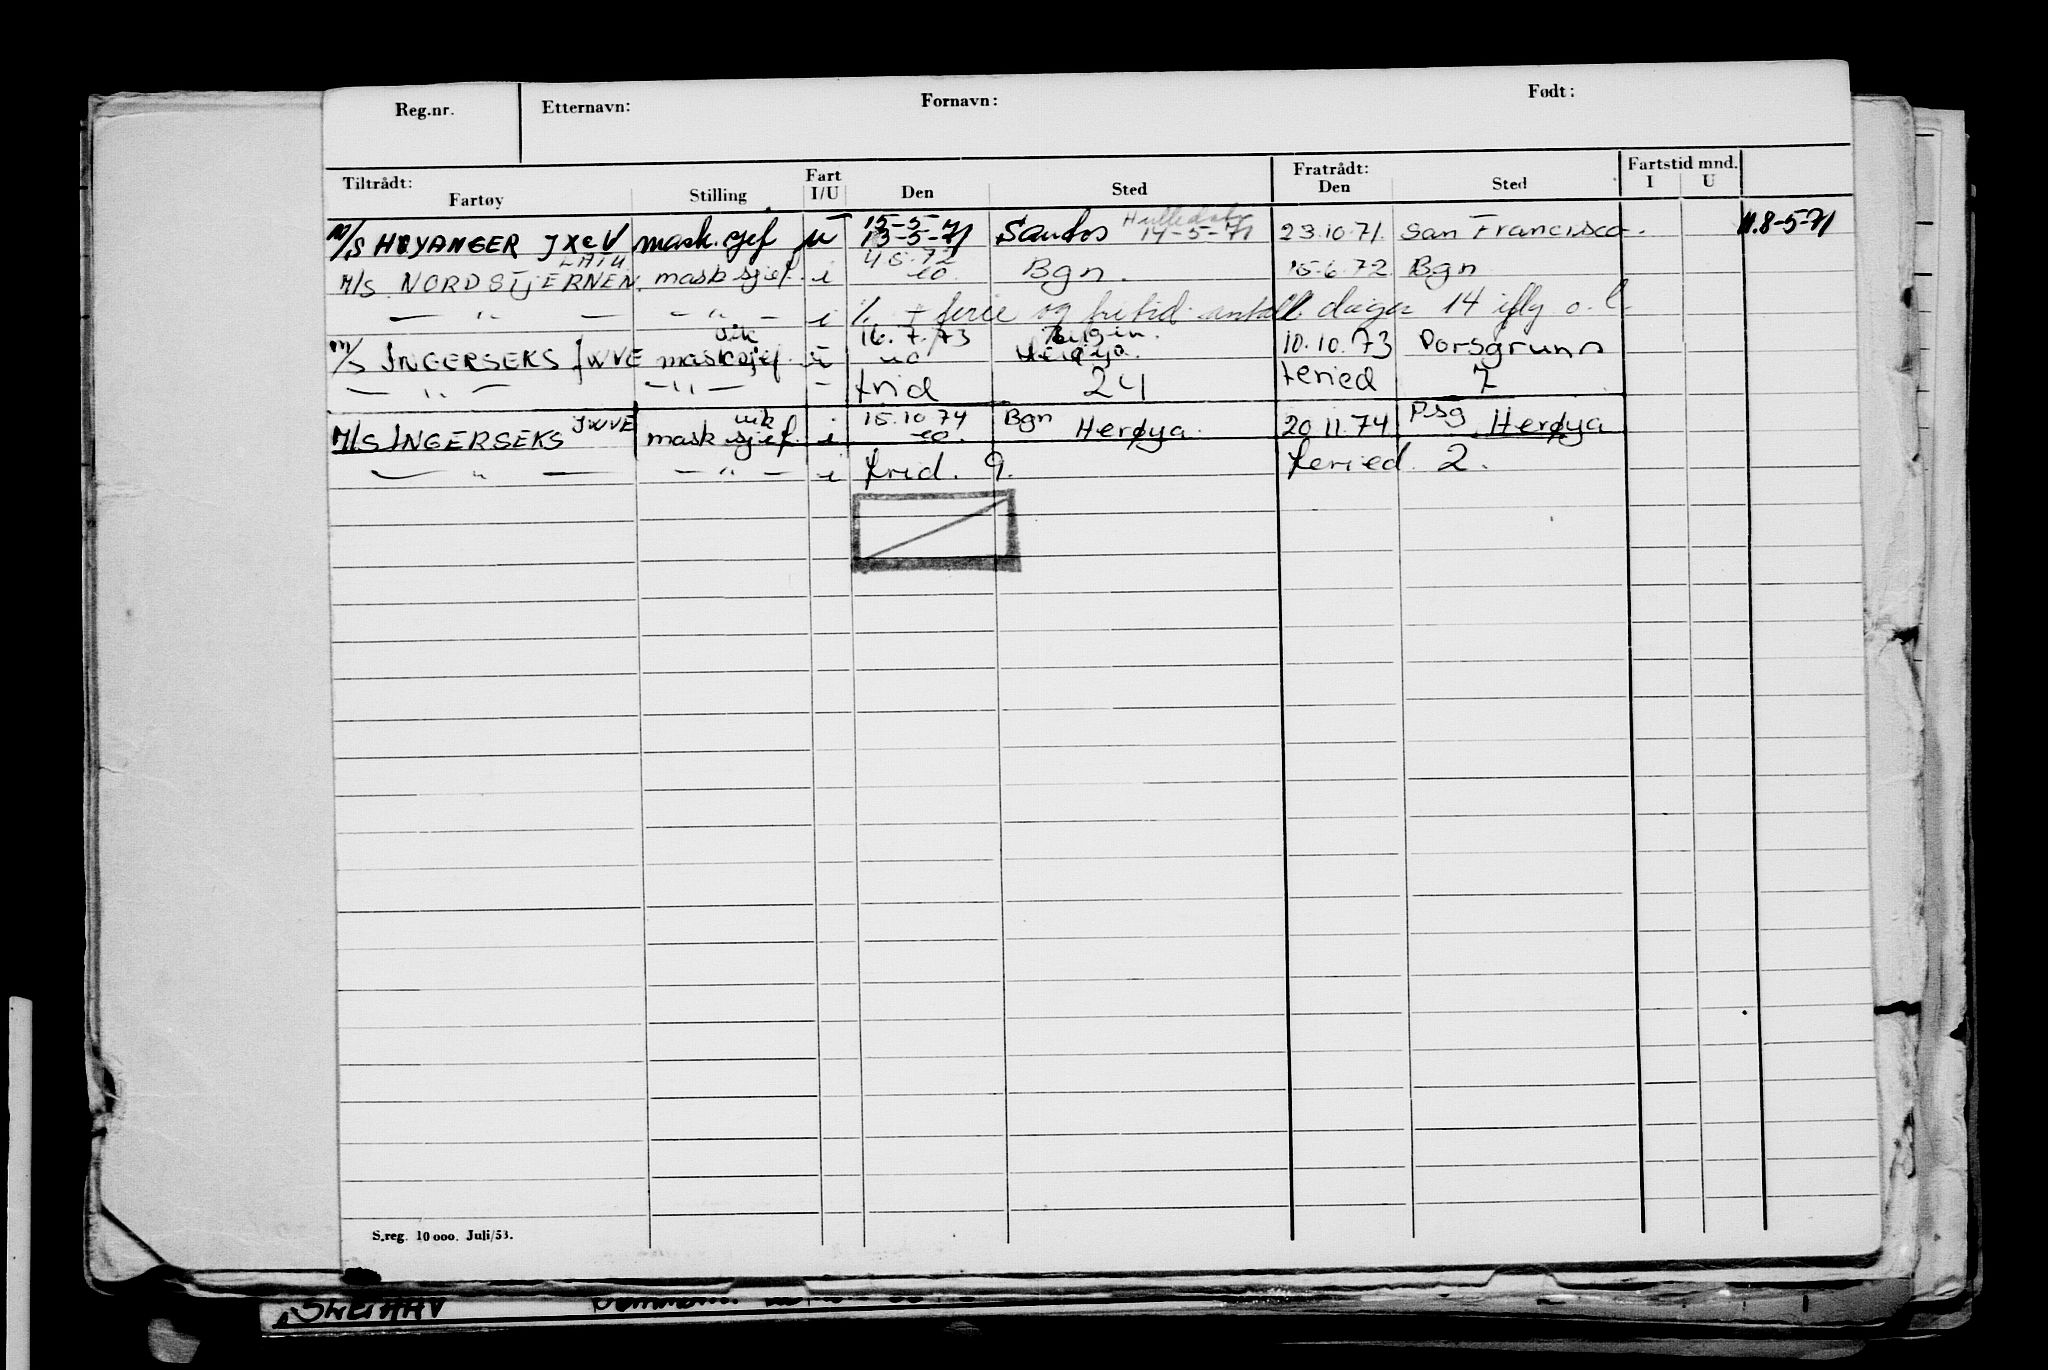 Reg.nr. Etternavn: Fornavn: Født:
Tiltrådt: Fart Fratrådt: Fartstid mnd.
Fartøy Stilling I/U Den Sted Den Sted I U
15-5-71
M/S HØYANGER JXCV mask.sjef u 13-5-71 Santos 14-5-71 23.10.71. San Francisco. M.8-5-71
LATU 4 5.72
M/S NORDSTJERNEN. mask sjef. i Bgn. 15.6.72 Bgn
— " — — " — i % + ferie og fritid antall dager 14 iflg o.l.
vik 16.7.73
M/S INGERSEKS JWVE mask sjef. i Herøya. 10.10.73 Porsgrunn
— " — — " — - frid 24 feried 7
JWVE vik 15.10.74 Bgn Psg
M/S INGERSEKS mask sjef. i Herøya. 20.11.74 Herøya
— " — — " — i frid. 9. feried. 2.
S.reg. 10 000. Juli/53.